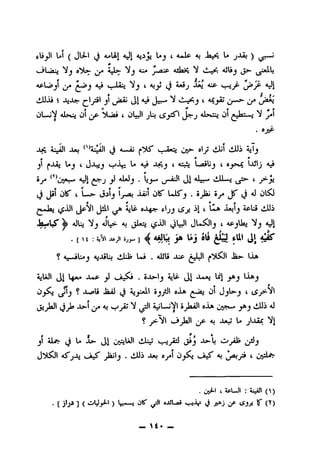 نسبي ( بقدر ما يحيط به علمه ، وما يؤديه إليه إلهامه في الحال ) أما الوفاء
بالمعنى حق وفائه بحيث لا يخطئه عنصر منه ولا حلية من حلاه ، ولا ينضاف
إليه عَرَض غريب عنه يُعَدُّ رقعة في ثوبه ، ولا ينقلب فيه وضع من أوضاعه
يَغُضُّ من حسن تقويمه ، وبحيث لا سبيل فيه إلى نقض أو اقتراح جديد ؛ فذلك
أمرٌ لا يستطيع أن ينتحله رجلٌ اكتوى بنار البيان ، فضلاً عن أن ينحله لإنسان
غيره .
وآية ذلك أنك تراه حين يتعقب كلام نفسه في الفَيْنة(١) بعد الفينة يجد
فيه زائداً يمحوه ، وناقصاً يثبته ، ويجد فيه ما يهذب ويبدل ، وما يقدم أو
يؤخر ، حتى يسلك سبيله إلى النفس سوياً . ولعله لو رجع إليه سبعين(٢) مرة
لكان له في كل مرة نظرة . وكلما كان أنفذ بصراً وأدق حساً ، كان أقل في
ذلك قناعة وأبعد همًّا ، إذ يرى وراء جهده غاية هي المثل الأعلى الذي يطمح
إليه ولا يطاوعه ، والكمال البياني الذي يتعلق به خياله ولا يناله ﴿ كباسِطِ
كفّيْهِ إلى الماءِ لِيَبْلُغَ فَاهُ وَمَا هُوَ بِبَالِغِه ﴾ [ سورة الرعد الآية : ١٤ ] .
هذا حظ الكلام البليغ عند قائله . فما ظنك بناقديه ومنافسيه ؟
هذا وهو إنما يعمد إلى غاية واحدة . فكيف لو عمد معها إلى الغاية
الأخرى ، وحاول أن يضع هذه الثروة المعنوية في لفظ قاصد ؟ وأنَّى يكون
له ذلك وهو سجين هذه الفطرة الإنسانية التي لا تقرب به من أحد طرفي الطريق
إلا بمقدار ما تبعد به عن الطرف الآخر ؟
ولئن ظفرت بأحد وُفِّق لتقريب تينك الغايتين إلى حدٍّ ما في جملة أو
جملتين ، فتربص به كيف يكون أمره بعد ذلك . وانظر كيف يدركه الكلال
(١) الفينة : الساعة ، الحين .
(٢) كما يروى عن زهير في تهذيب قصائده التي كان يسميها ( الحوليات ) [ دراز ] .
— ١٤٠ —